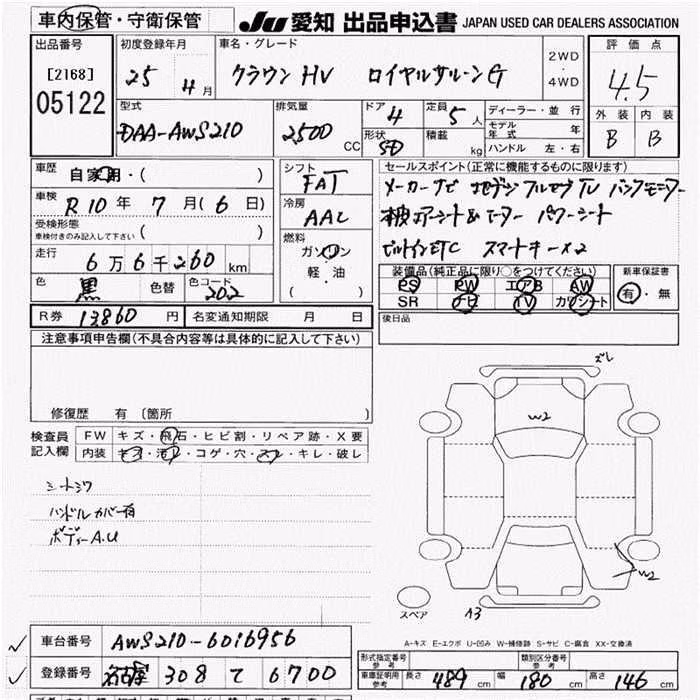 車内保管・守衛保管
JU 愛知 出品申込書 JAPAN USED CAR DEALERS ASSOCIATION
出品番号 [2168] 05122
初度登録年月 25 4月
車名・グレード クラウンHV ロイヤルサルーンG
2WD・4WD
評価点 4.5
外装 B 内装 B
型式 DAA-AWS210
排気量 2500 CC
ドア 4 定員 5人
形状 SD 積載 kg
ディーラー・並行
モデル年式 年
ハンドル 左・右
車歴 自家用・( )
車検 R10年 7月(6日)
受検形態 車検付きのみ記入して下さい ( )
走行 6万6千260km
色 黒 色替 色コード 202
シフト FAT
冷房 AAC
燃料 ガソリン 軽・油 ( )
セールスポイント(正常に機能するものに限ります)
メーカーナビ 地デジ フルセグTV バックモニター
本被 エアーシート&ヒーター パワーシート
ビルトインETC スマートキー×2
装備品(純正品に限り○をつけてください)
PS PW エアB AW
SR ナビ TV カワシート
新車保証書 有・無
後日品
R券 13,860円 名変通知期限 月 日
注意事項申告欄(不具合内容等は具体的に記入して下さい)
修復歴 有〔箇所 〕
検査員記入欄
FW キズ・飛石・ヒビ割・リペア跡・X要
内装 キズ・汚レ・コゲ・穴・スレ・キレ・破レ
シートシワ
ハンドルカバー有
ボディーA.U
ズレ
W2
W2
A3
スペア
A-キズ E-エクボ U-凹み W-補修跡 S-サビ C-腐食 XX-交換済
車台番号 AWS210-6016956
登録番号 名古屋 308 て 6700
形式指定番号 参考 類別区分番号 参考
車庫証明用参考 長さ 489cm 幅 180cm 高さ 146cm